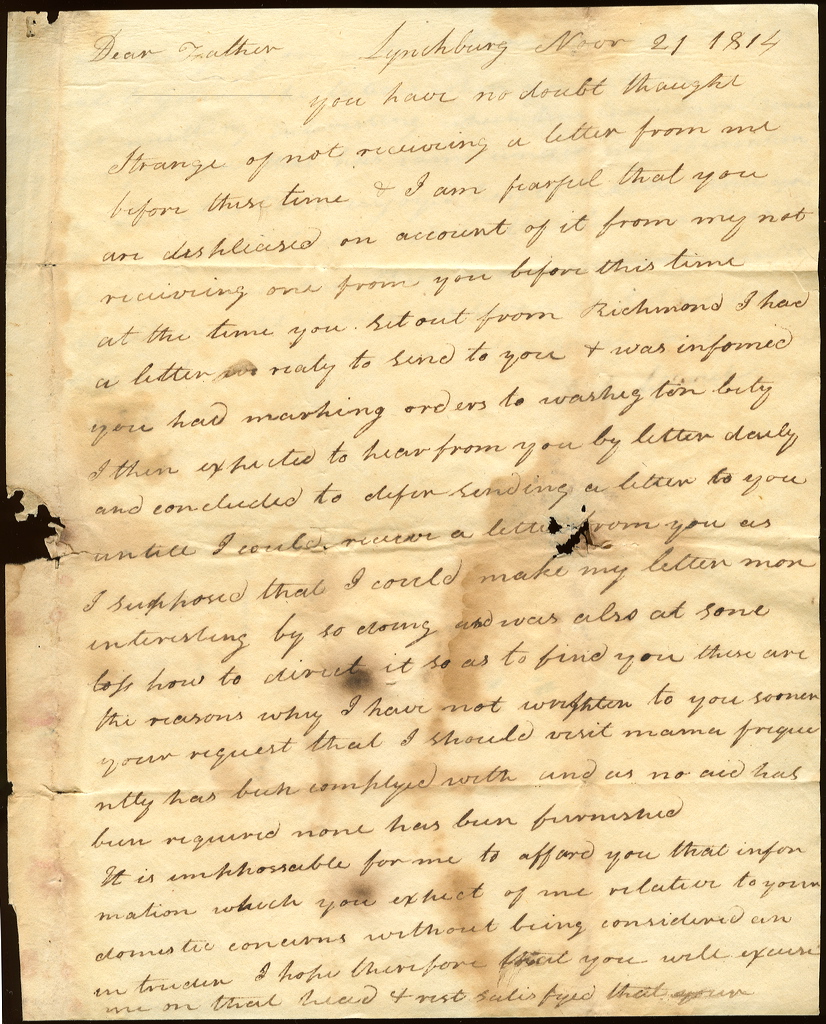 Dear Father Lynchburg Novr 21 1814
you have no doubt thought
Strange of not receiveing a letter from me
before these time & I am fearful that you
are displieased on account of it from my not
receiveing one from you before this time
at the time you set out from Richmond I had
a letter realy to send to you & was infomed
you had marhing orders to washegton City
I then expected to hear from you by letter daily
and concluded to defer sending a letter to you
untill I could receive a letter from you as
I supposed that I could make my letter more
interesting by so doing and was also at some
loss how to direct it so as to find you these are
the reasons why I have not wrighten to you sooner
your request that I should visit mama freque
ntly has been complyed with and as no aid has
been required none has been furnished
It is imphossable for me to afford you that infor
mation which you expect of me relative to your
domestic concerns without being considered an
intruder I hope therefore that you will excuse
me on that head & rest satisfyed that your